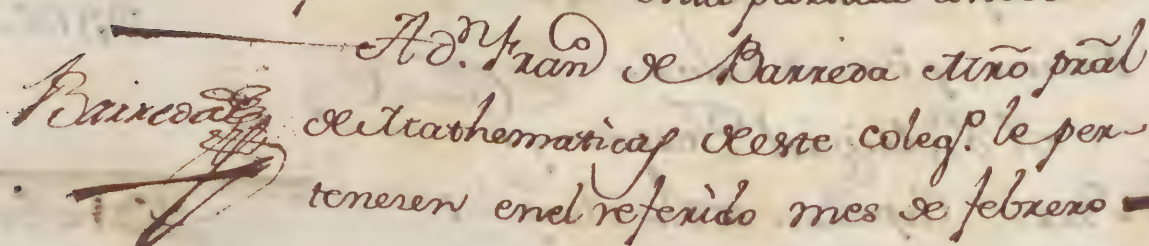 A d.n Fran.co de Barreda Mro pral
Barreda
de Mathematicas deste coleg.o le per-
tenesen enel referido mes de febrero